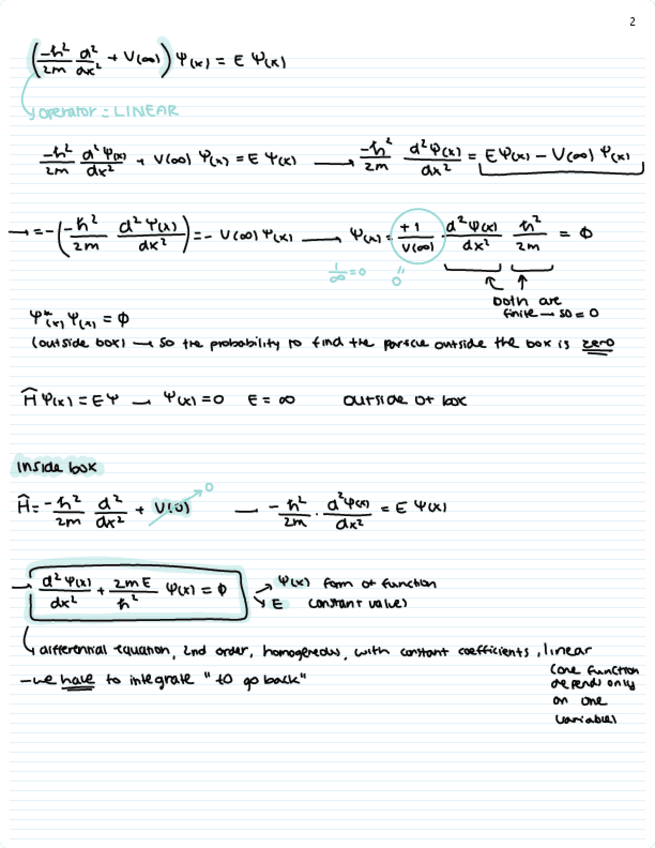 2
(-ħ²/2m d²/dx² + V(∞)) Ψ(x) = E Ψ(x)
operator = LINEAR
-ħ²/2m d²Ψ(x)/dx² + V(∞) Ψ(x) = E Ψ(x) → -ħ²/2m d²Ψ(x)/dx² = EΨ(x) - V(∞) Ψ(x)
→ = -(-ħ²/2m d²Ψ(x)/dx²) = - V(∞) Ψ(x) → Ψ(x) = +1/V(∞) · d²Ψ(x)/dx² ħ²/2m = 0
1/∞ = 0 0"
both are
finite → so = 0
Ψ*(x) Ψ(x) = 0
(outside box) → so the probability to find the particle outside the box is zero
Ĥ Ψ(x) = EΨ → Ψ(x) = 0 E = ∞ outside of box
inside box
Ĥ = -ħ²/2m d²/dx² + V(0) → 0 — -ħ²/2m · d²Ψ(x)/dx² = E Ψ(x)
→ d²Ψ(x)/dx² + 2mE/ħ² Ψ(x) = 0 → Ψ(x) form of function
→ E constant values
differential equation, 2nd order, homogeneous, with constant coefficients, linear
- we have to integrate "to go back"
(one function
depends only
on one
variable)